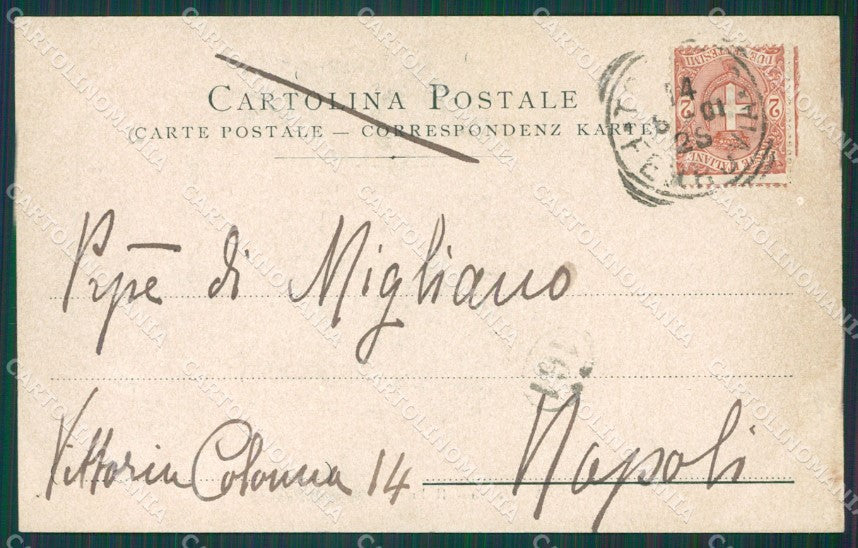 CARTOLINA POSTALE
(CARTE POSTALE — CORRESPONDENZ KARTE)
Prpe di Migliano
Vittoria Colonna 14
Napoli
161
14
01
2S
2
2
CARTOLINOMANIA